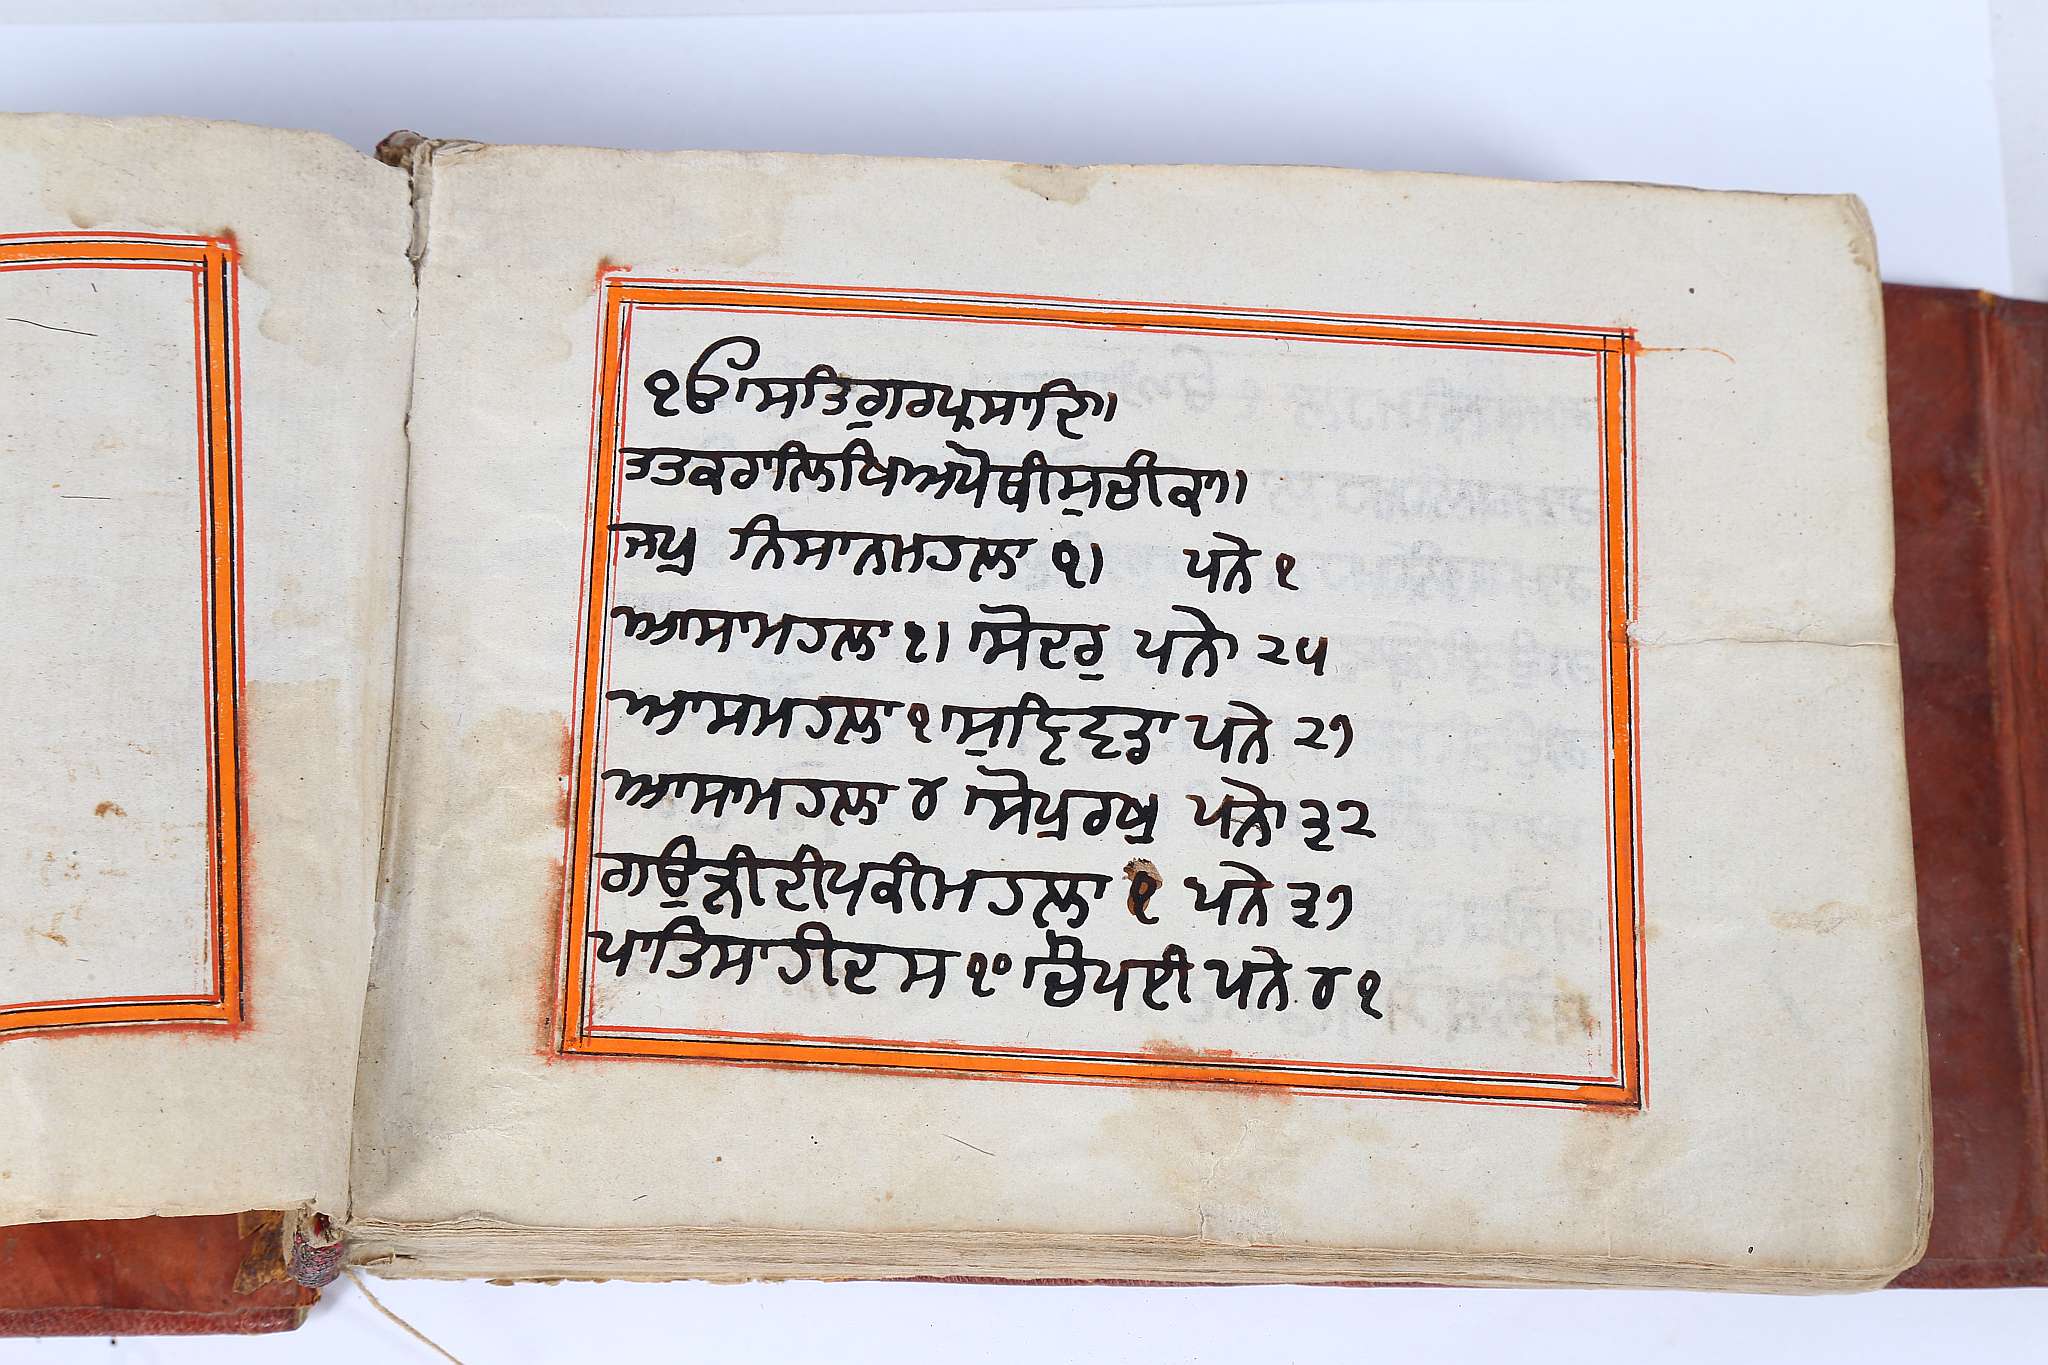 ੧ਓੁਸਤਿਗੁਰਪ੍ਰਸਾਦਿ॥
ਤਤਕਰਾਲਿਖਿਅਪੋਥੀਸੁਚੀਕਾ॥
ਜਪੁ ਨਿਸਾਨਮਹਲਾ ੧। ਪਨੇ ੧
ਆਸਾਮਹਲਾ ੧। ਸੋਦਰੁ ਪਨੇ ੨੫
ਆਸਮਹਲਾ ੧।ਸੁਣਿਵਡਾ ਪਨੇ ੨੭
ਆਸਾਮਹਲਾ ੪ ਸੋਪੁਰਖੁ ਪਨੇ ੩੨
ਗਉੜੀਦੀਪਕੀਮਹਲਾ ੧ ਪਨੇ ੩੭
ਪਾਤਿਸਾਹੀਦਸ ੧੦ ਚੌਪਈ ਪਨੇ ੪੧